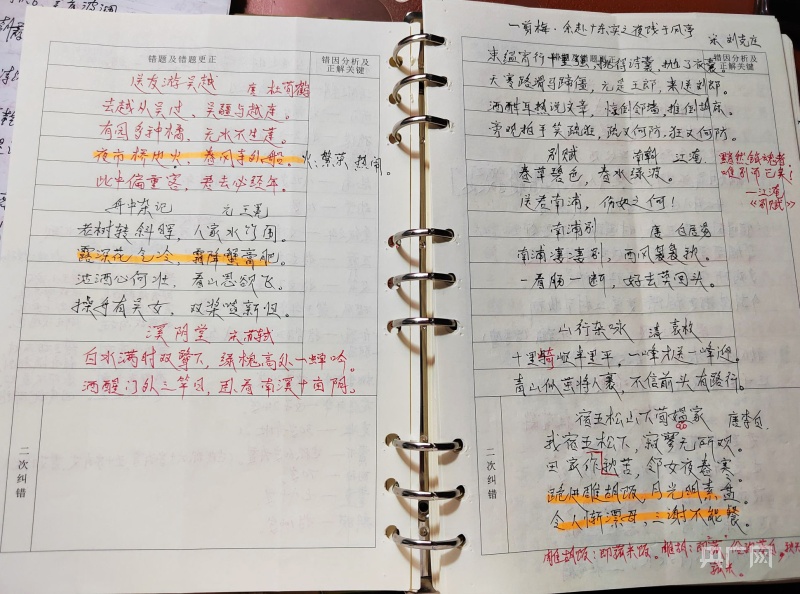 错题及错题更正
错因分析及
正解关键
送友游吴越 唐 杜荀鹤
去越从吴过，吴疆与越连。
有园多种橘，无水不生莲。
夜市桥边火，春风寺外船。
火：繁荣，热闹。
此中偏重客，君去必经年。
舟中杂记 元 王冕
老树转斜晖，人家水竹围。
露深花气冷，霜降蟹膏肥。
沽酒心何壮，看山思欲飞。
操舟有吴女，双桨唱新归。
溪阴堂 宋 苏轼
白水满时双鹭下，绿槐高处一蝉吟。
酒醒门外三竿日，卧看南溪十亩阴。
二次纠错
一剪梅·余赴广东实之夜饯于风亭 宋 刘克庄
束缊宵行十里强，挑得诗囊，抛了衣囊。
天寒路滑马蹄僵，元是王郎，来送刘郎。
酒酣耳热说文章，惊倒邻墙，推倒胡床。
旁观拍手笑疏狂，疏又何妨，狂又何妨。
错因分析及
正解关键
别赋 南朝 江淹
春草碧色，春水绿波。
送君南浦，伤如之何！
黯然销魂者，
唯别而已矣！
—江淹
《别赋》
南浦别 唐 白居易
南浦凄凄别，西风袅袅秋。
一看肠一断，好去莫回头。
山行杂咏 清 袁枚
十里崎岖半里平，一峰才送一峰迎。
青山似茧将人裹，不信前头有路行。
宿五松山下荀媪家 唐 李白
我宿五松下，寂寥无所欢。
田家作秋苦，邻女夜舂寒。
跪进雕胡饭，月光明素盘。
令人惭漂母，三谢不能餐。
二次纠错
雕胡饭：即菰米饭。雕胡：即菰
央广网